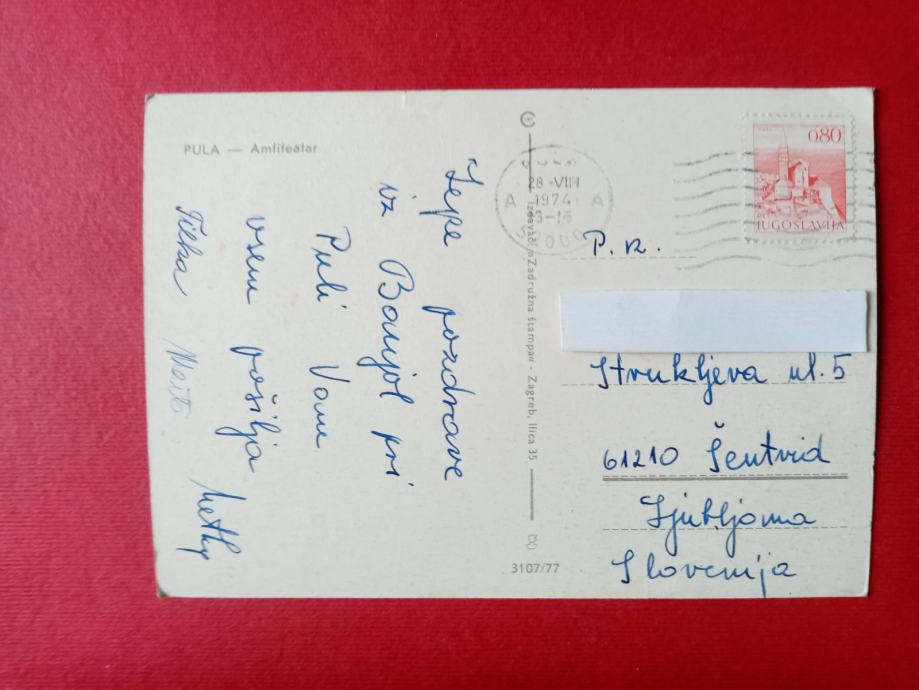 PULA — Amfiteatar
Lepe pozdrave
iz Banjol pri
Puli Vam
vsem pošilja
Metky
Tilka
Izdavač: »Zadružna štampa« - Zagreb, Ilica 35
3107/77
28 -VIII
1974
A A
0,80
JUGOSLAVIJA
P. n.
Štrukljeva ul. 5
61210 Šentvid
Ljubljana
Slovenija